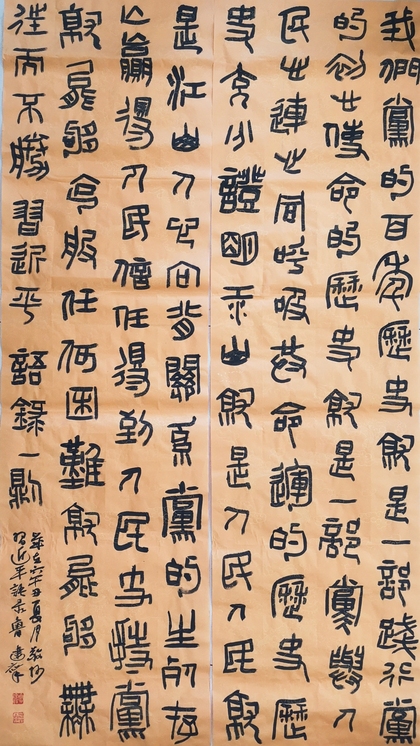 我們黨的百年歷史就是一部踐行黨
的初心使命的歷史就是一部黨與人
民心連心同呼吸共命運的歷史歷
史充分證明江山就是人民人民就
是江山人心向背關系黨的生死存
亡贏得人民信任得到人民支持黨
就能夠克服任何困難就能夠無
往而不勝 習近平語錄一則
丑夏月敬抄
習近平語錄 魯建